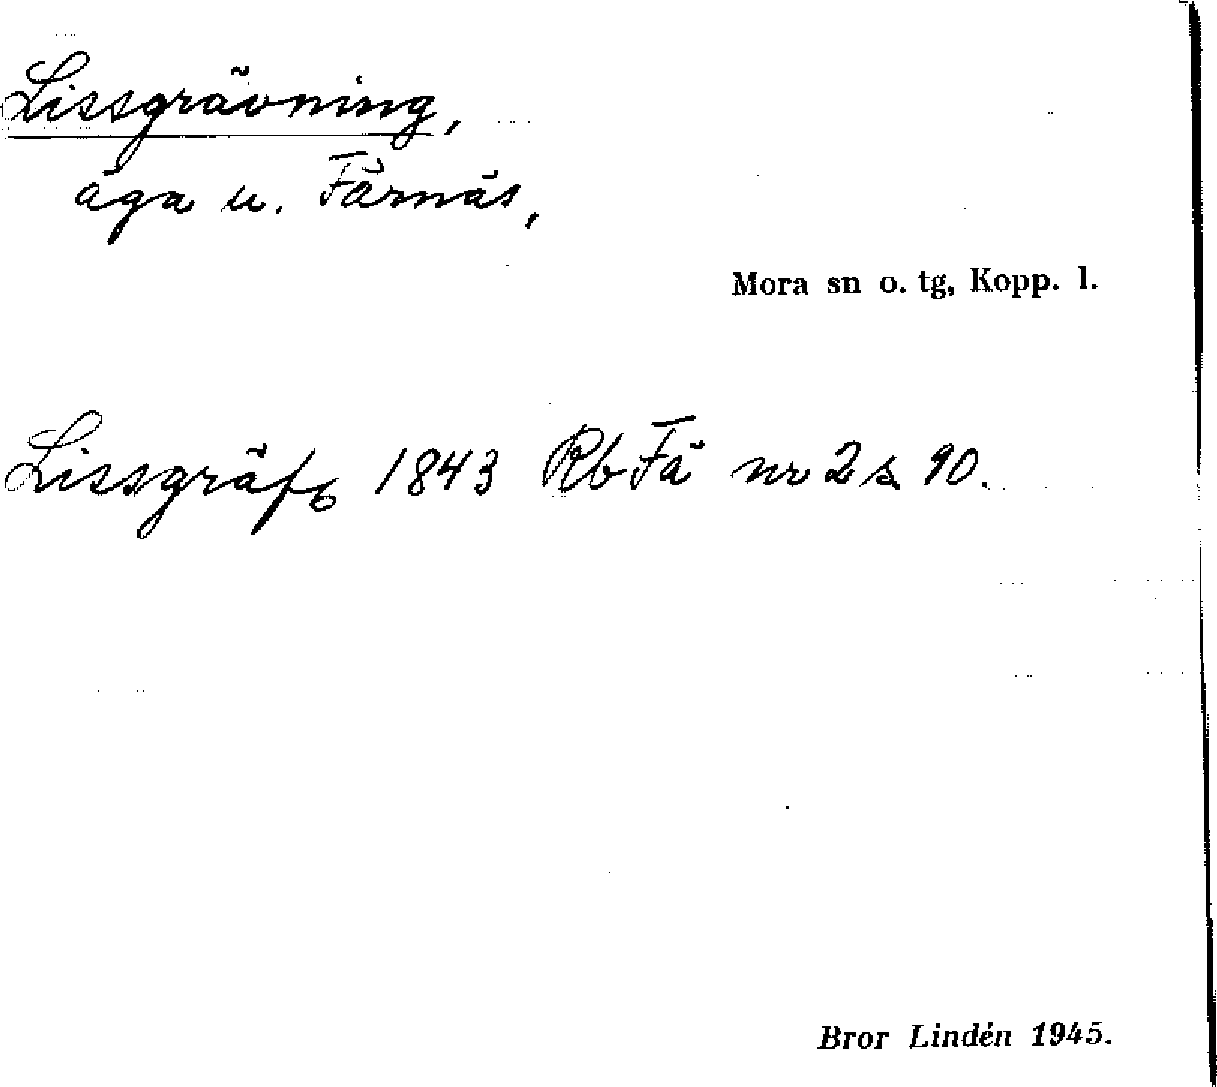 Lissgrävning,
äga u. Färnäs,
Mora sn o. tg, Kopp. l.
Lissgräfn 1843 Rb Fä nr 2 s. 90.
Bror Lindén 1945.